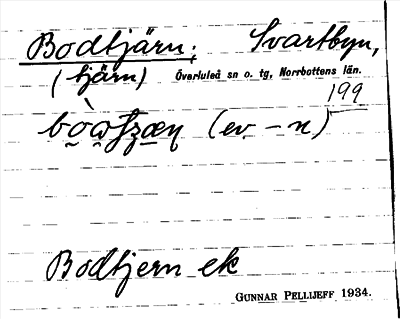 Bodtjärn; Svartbyn,
(tjärn) Överluleå sn o. tg, Norrbottens län.
199
(ev. -n)
Bodtjern ek
GUNNAR PELLIJEFF 1934.